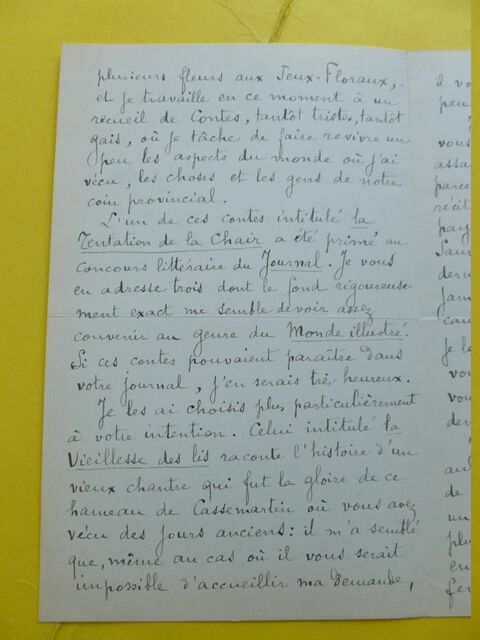 plusieurs fleurs aux Jeux-Floraux,
et je travaille en ce moment à un
recueil de Contes, tantôt tristes, tantôt
gais, où je tâche de faire revivre un
peu les aspects du monde où j'ai
vécu, les choses et les gens de notre
coin provincial.
L'un de ces contes intitulé la
Tentation de la Chair a été primé au
Concours littéraire du Journal. Je vous
en adresse trois dont le fond rigoureuse-
ment exact me semble devoir assez
convenir au genre du Monde illustré.
Si ces contes pouvaient paraître dans
votre journal, j'en serais très-heureux.
Je les ai choisis plus particulièrement
à votre intention. Celui intitulé la
Vieillesse des lis raconte l'histoire d'un
vieux chantre qui fut la gloire de ce
hameau de Cassemartin où vous avez
vécu des jours anciens: il m'a semblé
que, même au cas où il vous serait
impossible d'accueillir ma demande,
il vo
peu
vous
assa
parce
récit
pay
Sau
der
Jam
cau
Je le
vou
vou
de
au
de
un
plu
en
fer